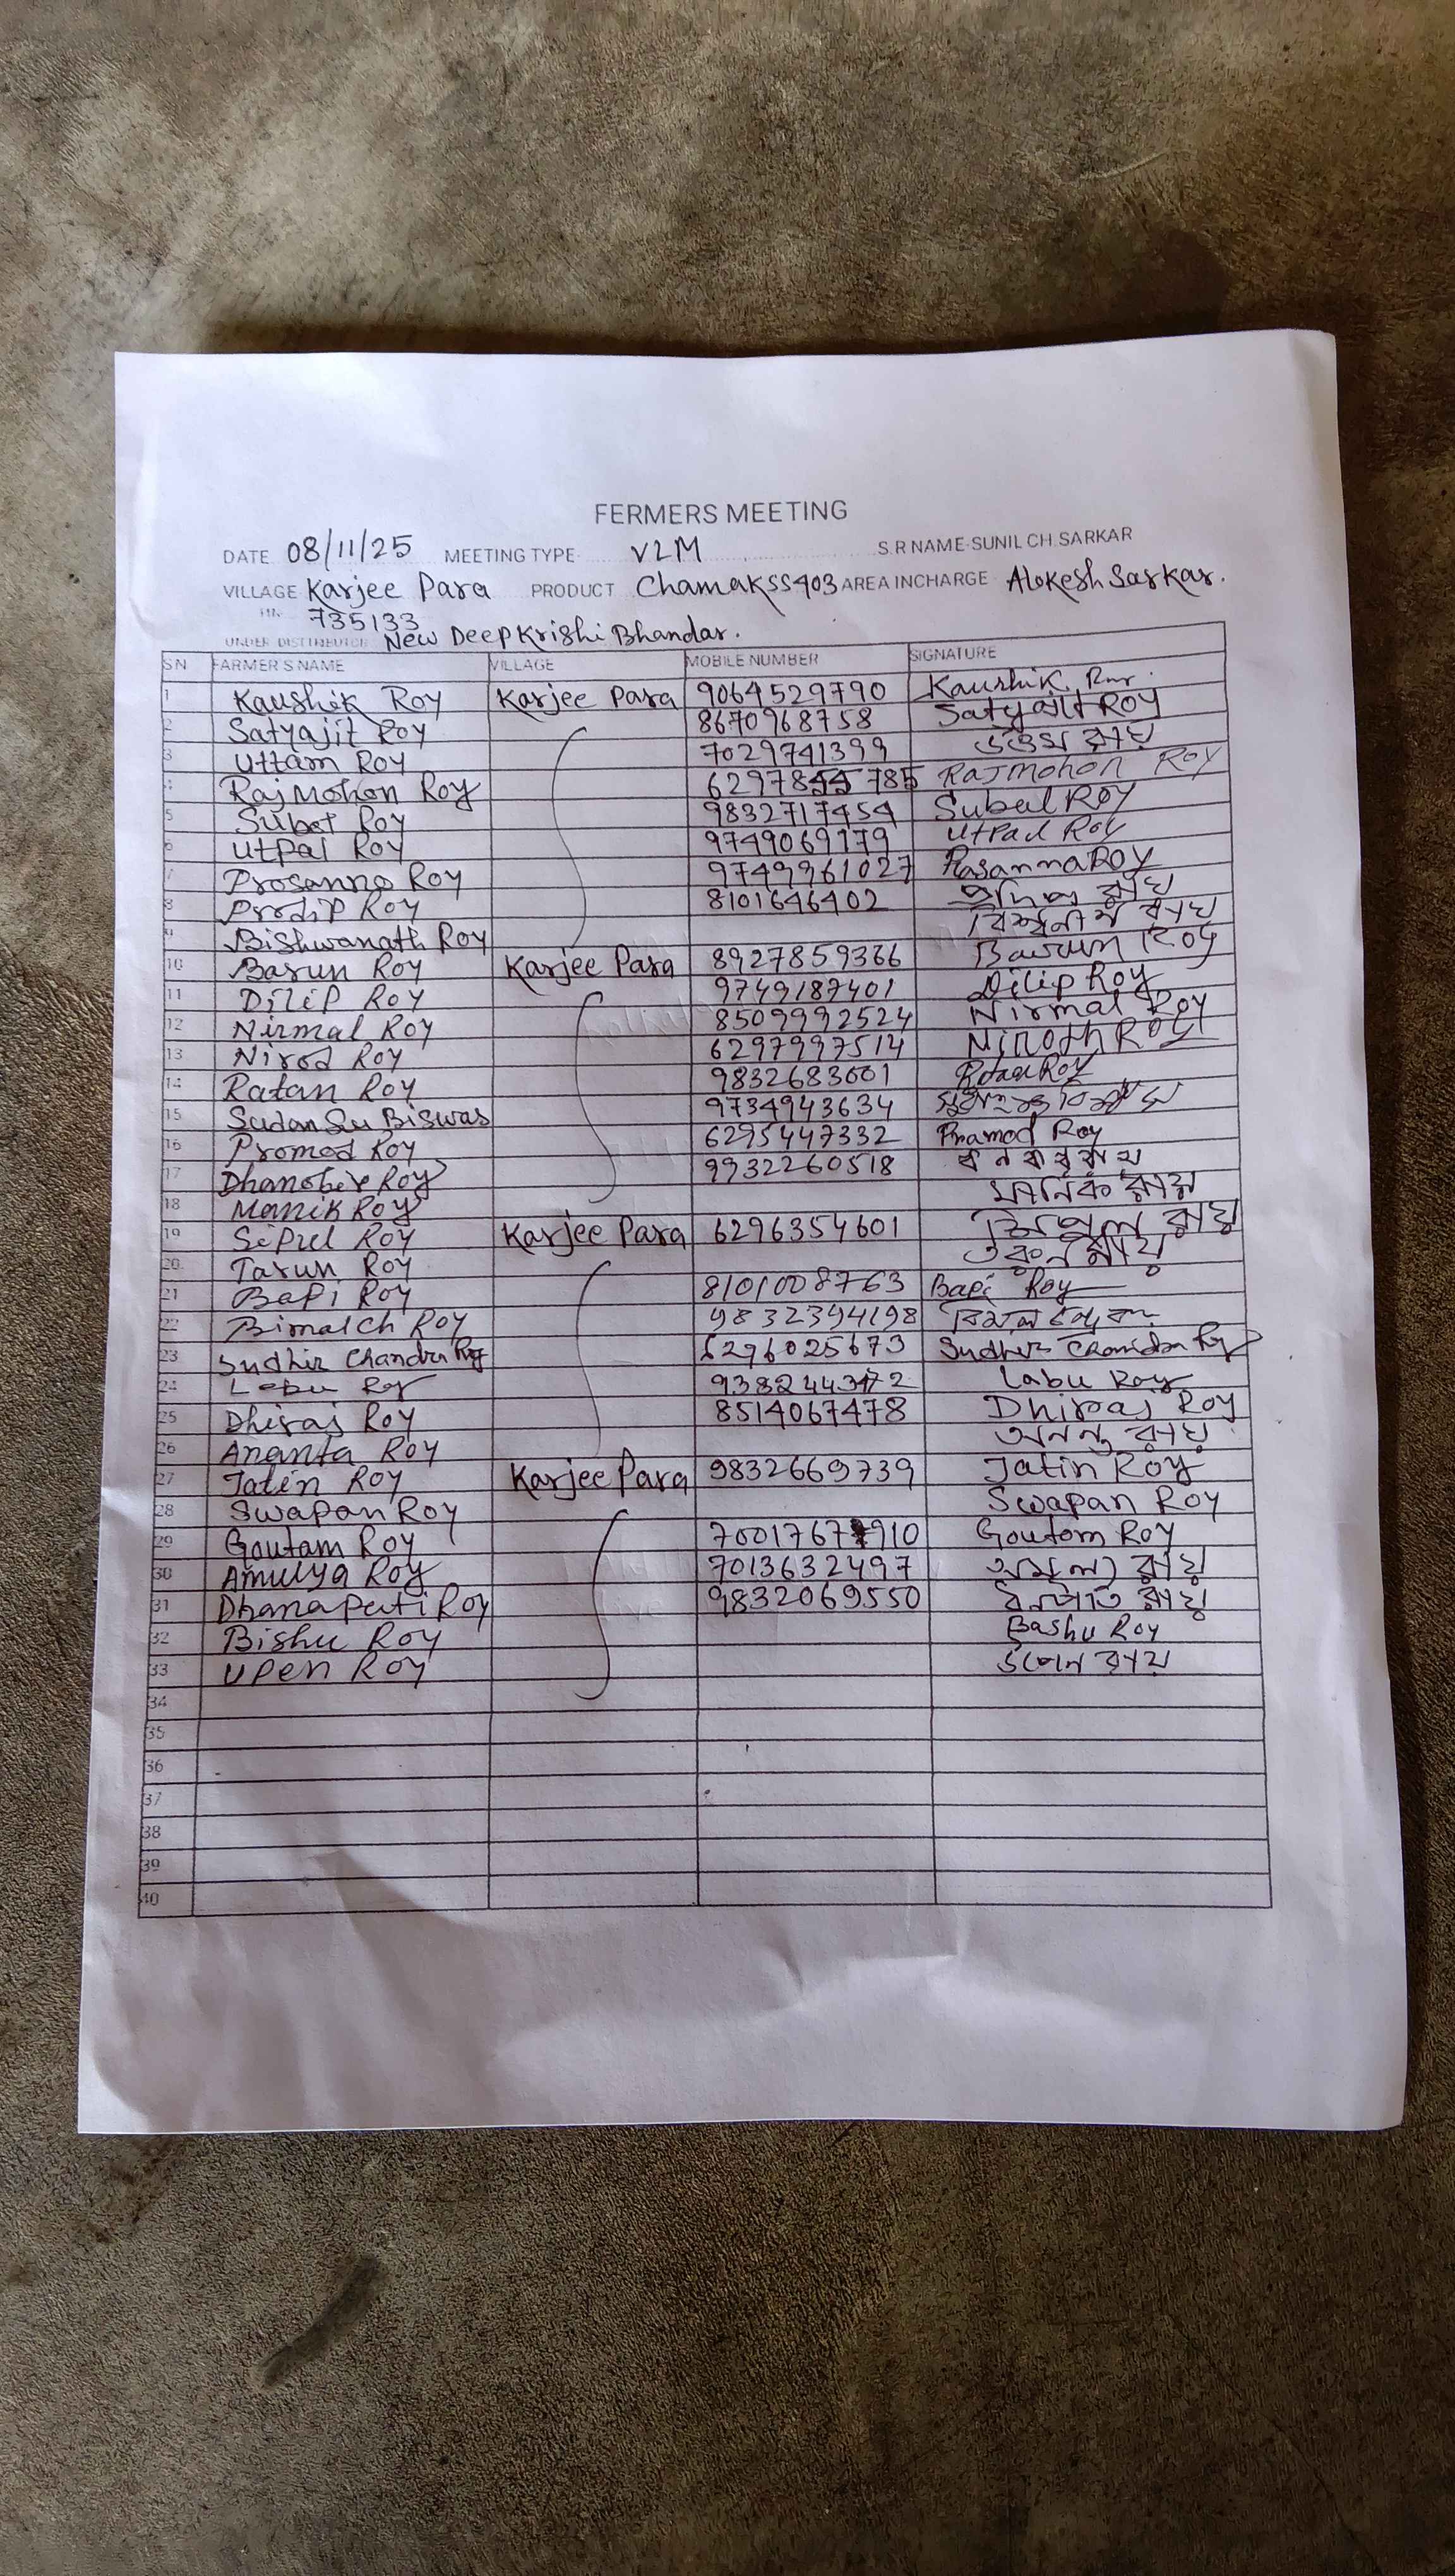 FERMERS MEETING
DATE 08/11/25 MEETING TYPE V2M S.R NAME-SUNIL CH.SARKAR
VILLAGE Karjee Para PRODUCT ChamakSS403 AREA INCHARGE Alokesh Sarkar.
735133
UNDER DISTRIBUTOR New Deep Krishi Bhandar.
SN FARMER S NAME VILLAGE MOBILE NUMBER SIGNATURE
1 Kaushik Roy Karjee Para 9064529790 Kaushik
2 Satyajit Roy 8670968758 Satyajit Roy
3 Uttam Roy 7029741399 উত্তম রায়
4 RajMohon Roy 6297844785 Rajmohon Roy
5 Subol Roy 9832717454 Subal Roy
6 Utpal Roy 9749069779 Utpal Roy
7 Prosanno Roy 9749961027 Prasanna Roy
8 Prodip Roy 8101646402 রায়
9 Bishwanath Roy বিশ্বনাথ রায়
10 Barun Roy Karjee Para 8927859366 Barun Roy
11 Dilip Roy 9749187401 Dilip Roy
12 Nirmal Roy 8509992524 Nirmal Roy
13 Nirod Roy 6297997514 Niroth Roy
14 Ratan Roy 9832683601 Ratan Roy
15 Biswas 9734943634
16 Promod Roy 6295447332 Pramod Roy
17 Dhanobir Roy 9932260518
18 Manik Roy মানিক রায়
19 Sipul Roy Karjee Para 6296354601 রায়
20 Tarun Roy তরুন রায়
21 Bapi Roy 8101008763 Bapi Roy
22 Bimalch Roy 9832394198
23 Sudhir Chandra Roy 6296025673 Sudhir Chandra Roy
24 Labu Roy 9382443472 Labu Roy
25 Dhiraj Roy 8514067478 Dhiraj Roy
26 Ananta Roy অনন্ত রায়
27 Jatin Roy Karjee Para 9832669739 Jatin Roy
28 Swapan Roy Swapan Roy
29 Goutam Roy Goutam Roy
30 Amulya Roy 7013632497 অমূল্য রায়
31 Dhanapati Roy 9832069550 ধনপতি রায়
32 Bishu Roy Bashu Roy
33 Upen Roy উপেন রায়
34
35
36
37
38
39
40